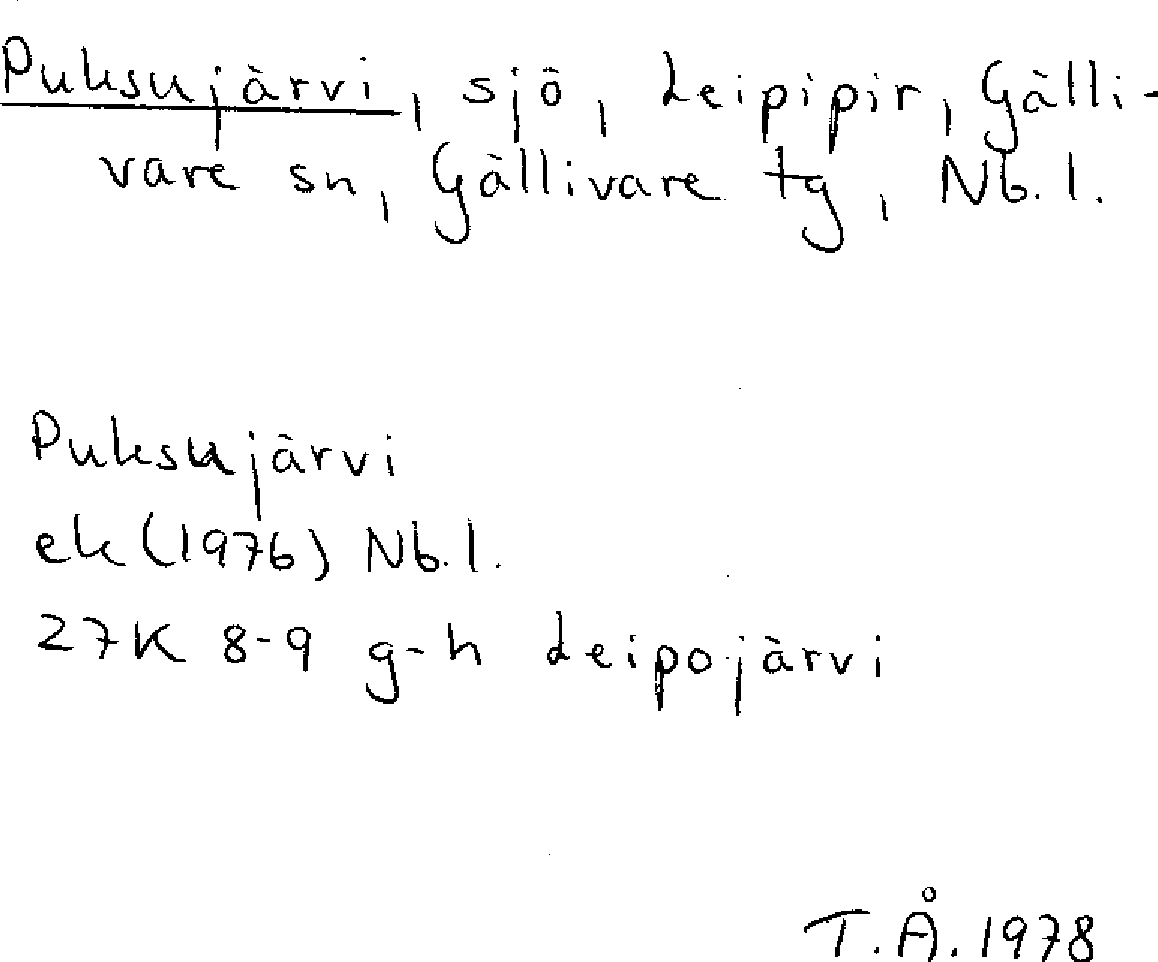 Puksujärvi, sjö, Leipipir, Gälli-
vare sn, Gällivare tg, Nb.l.
Puksujärvi
ek (1976) Nb.l.
27K 8-9 g-h Leipojärvi
T.Å. 1978